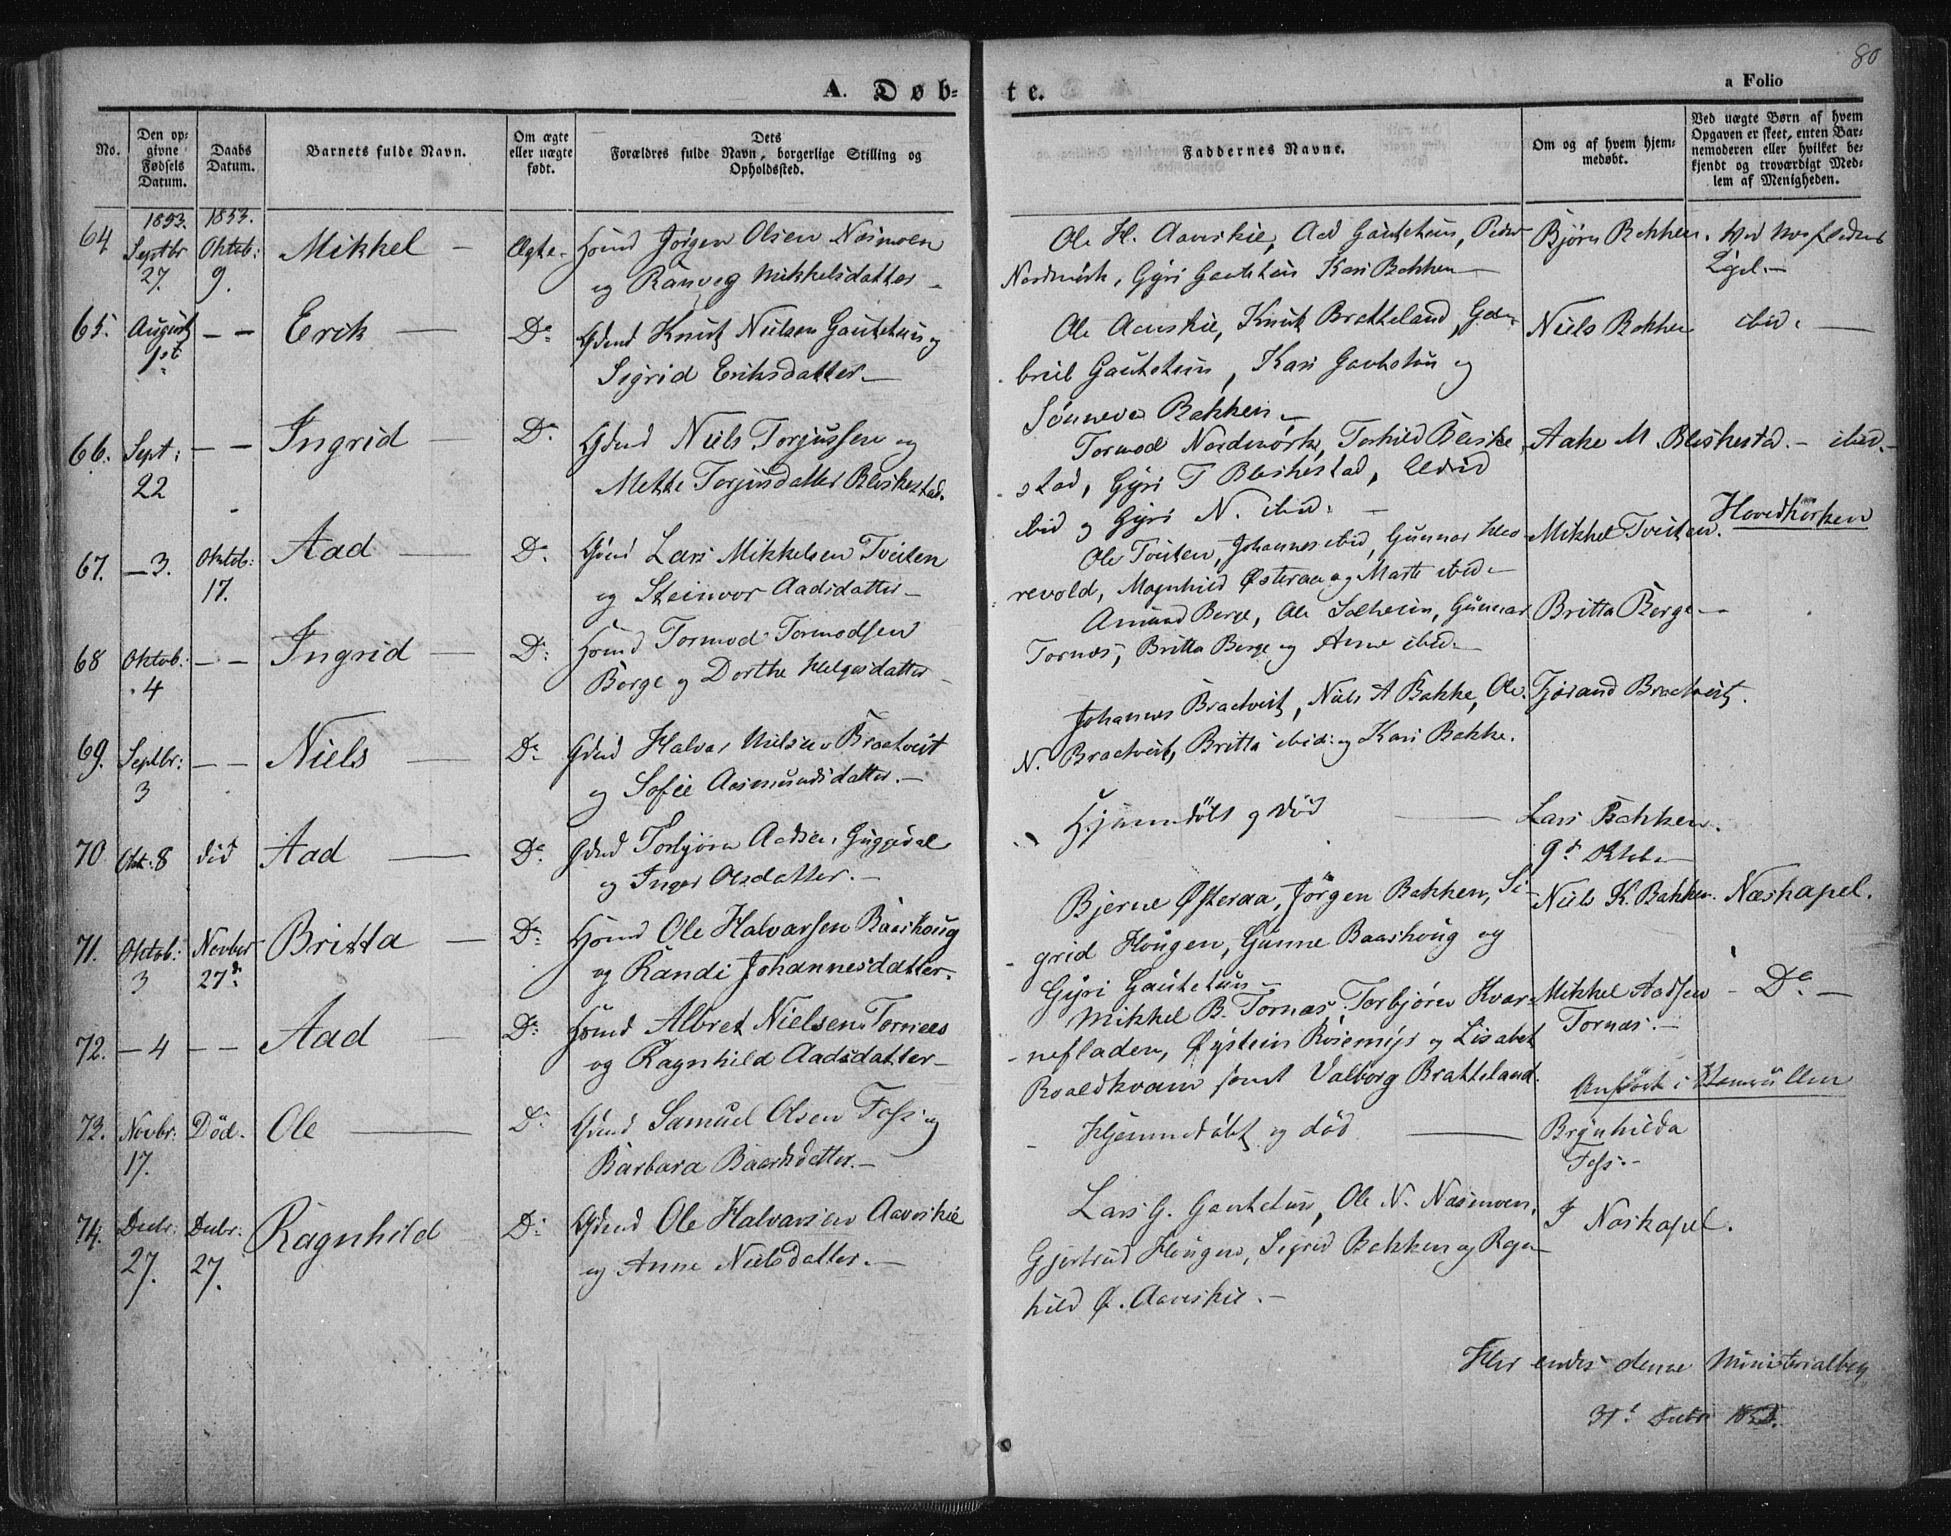 80
A. Døb-
te.
a Folio
No.
Den op-
givne
Fødsels
Datum.
Daabs
Datum.
Barnets fulde Navn.
Om ægte
eller uægte
født.
Dets
Forældres fulde Navn, borgerlige Stilling og
Opholdssted.
Faddernes Navne.
Om og af hvem hjem-
medøbt.
Ved uægte Børn af hvem
Opgaven er skeet, enten Bar-
nemoderen eller hvilket be-
kjendt og troværdigt Med-
lem af Menigheden.
64 1853. Septbr 27. 1853. Oktob: 9. Mikkel — Ægte. Hmd Jørgen Olsen Næsmoen
og Ranveg Mikkelsdatter —
Ole H. Aaveskie, Aad Gautetun, Peder
Nordmörk, Gyri Gautetun Kari Bakken —
Björn Bakken.
65. August — — Erik — Do Gdmd Knut Nielsen Gautetun og
Sigrid Eriksdatter —
Ole Aaveskie, Knut Bratteland, Ga-
briel Gautetun, Kari Gautetun og
Sönneva Bakken —
Niels Bakken ibid. —
66. Sept: 22 — — Ingrid — Do Gdmd Niels Torjussen og
Mette Torjusdatter Bleskestad.
Tormod Nordmörk, Torkild Bleske-
stad, Gyri T Bleskestad, Eldrid
ibid og Gyri N. ibid. —
Aake M. Bleskestad. — ibid. —
67. — 3. Oktob: 17. Aad — Do Gdmd Lars Mikkelsen Tveiten
og Steinvor Aadsdatter —
Ole Tveiten, Johannes ibid, Gunnar
revold, Magnhild Østeraa og Marte ibid —
Mikkel Tveiten. Hovedkirken
68 Oktob: 4 — — Ingrid — Do Hmd Tormod Tormodsen
Berge og Dorthe Helgesdatter —
Amund Berge, Ole Solheim, Gunnar
Tornæs, Britta Berge og Anne ibid —
Britta Berge —
69. Septbr: 3 — — Niels — Do Gdmd Halvar Nielsen Braatveit
og Sofie Aasmundsdatter. —
Johannes Braatveit, Niels A Bakke, Ole
N. Braatveit, Britta ibid: og Kari Bakke.
Tjörand Braatveit.
70 Okt: 8 död Aad — Do Gdmd Torbjörn Aadsen Guggedal
og Inger Olsdatter. —
Hjemmedöbt og död —
Lars Bakken.
9d Oktob —
71. Oktob: 3 Novbr 27d Britta — Do Hmd Ole Halvarsen Baashoug
og Randi Johannesdatter.
Bjerne Østeraa, Jörgen Bakken, Si-
grid Hougen, Gunne Baashoug og
Gyri Gautetun —
Niels K. Bakken. Næskapel.
72. — 4 — — Aad — Do Hmd Albret Nielsen Tornæs
og Ragnhild Aadsdatter —
Mikkel B. Tornæs, Torbjörn Kvar-
nefladen, Øystein Roaldkvam og Lisabet
Roaldkvam samt Valborg Bratteland.
Mikkel Aadsen
Tornæs. — — Do —
73. Novbr: 17. Död. Ole — Do Gdmd Samuel Olsen Foss og
Barbara Baardsdatter —
Hjemmedöbt og död —
Brynhilda
Foss. —
74. Decbr: 27. Decbr: 27. Ragnhild Do Gdmd Ole Halvarsen Aaveskie
og Anne Nielsdatter. —
Lars G. Gautetun, Ole N. Næsmoen,
Gjertrud Hougen, Sigrid Bakken og Ragn-
hild Ø. Aaveskie. —
I Næskapel.
Her endes denne Ministerialbog
31d Decbr 1853.